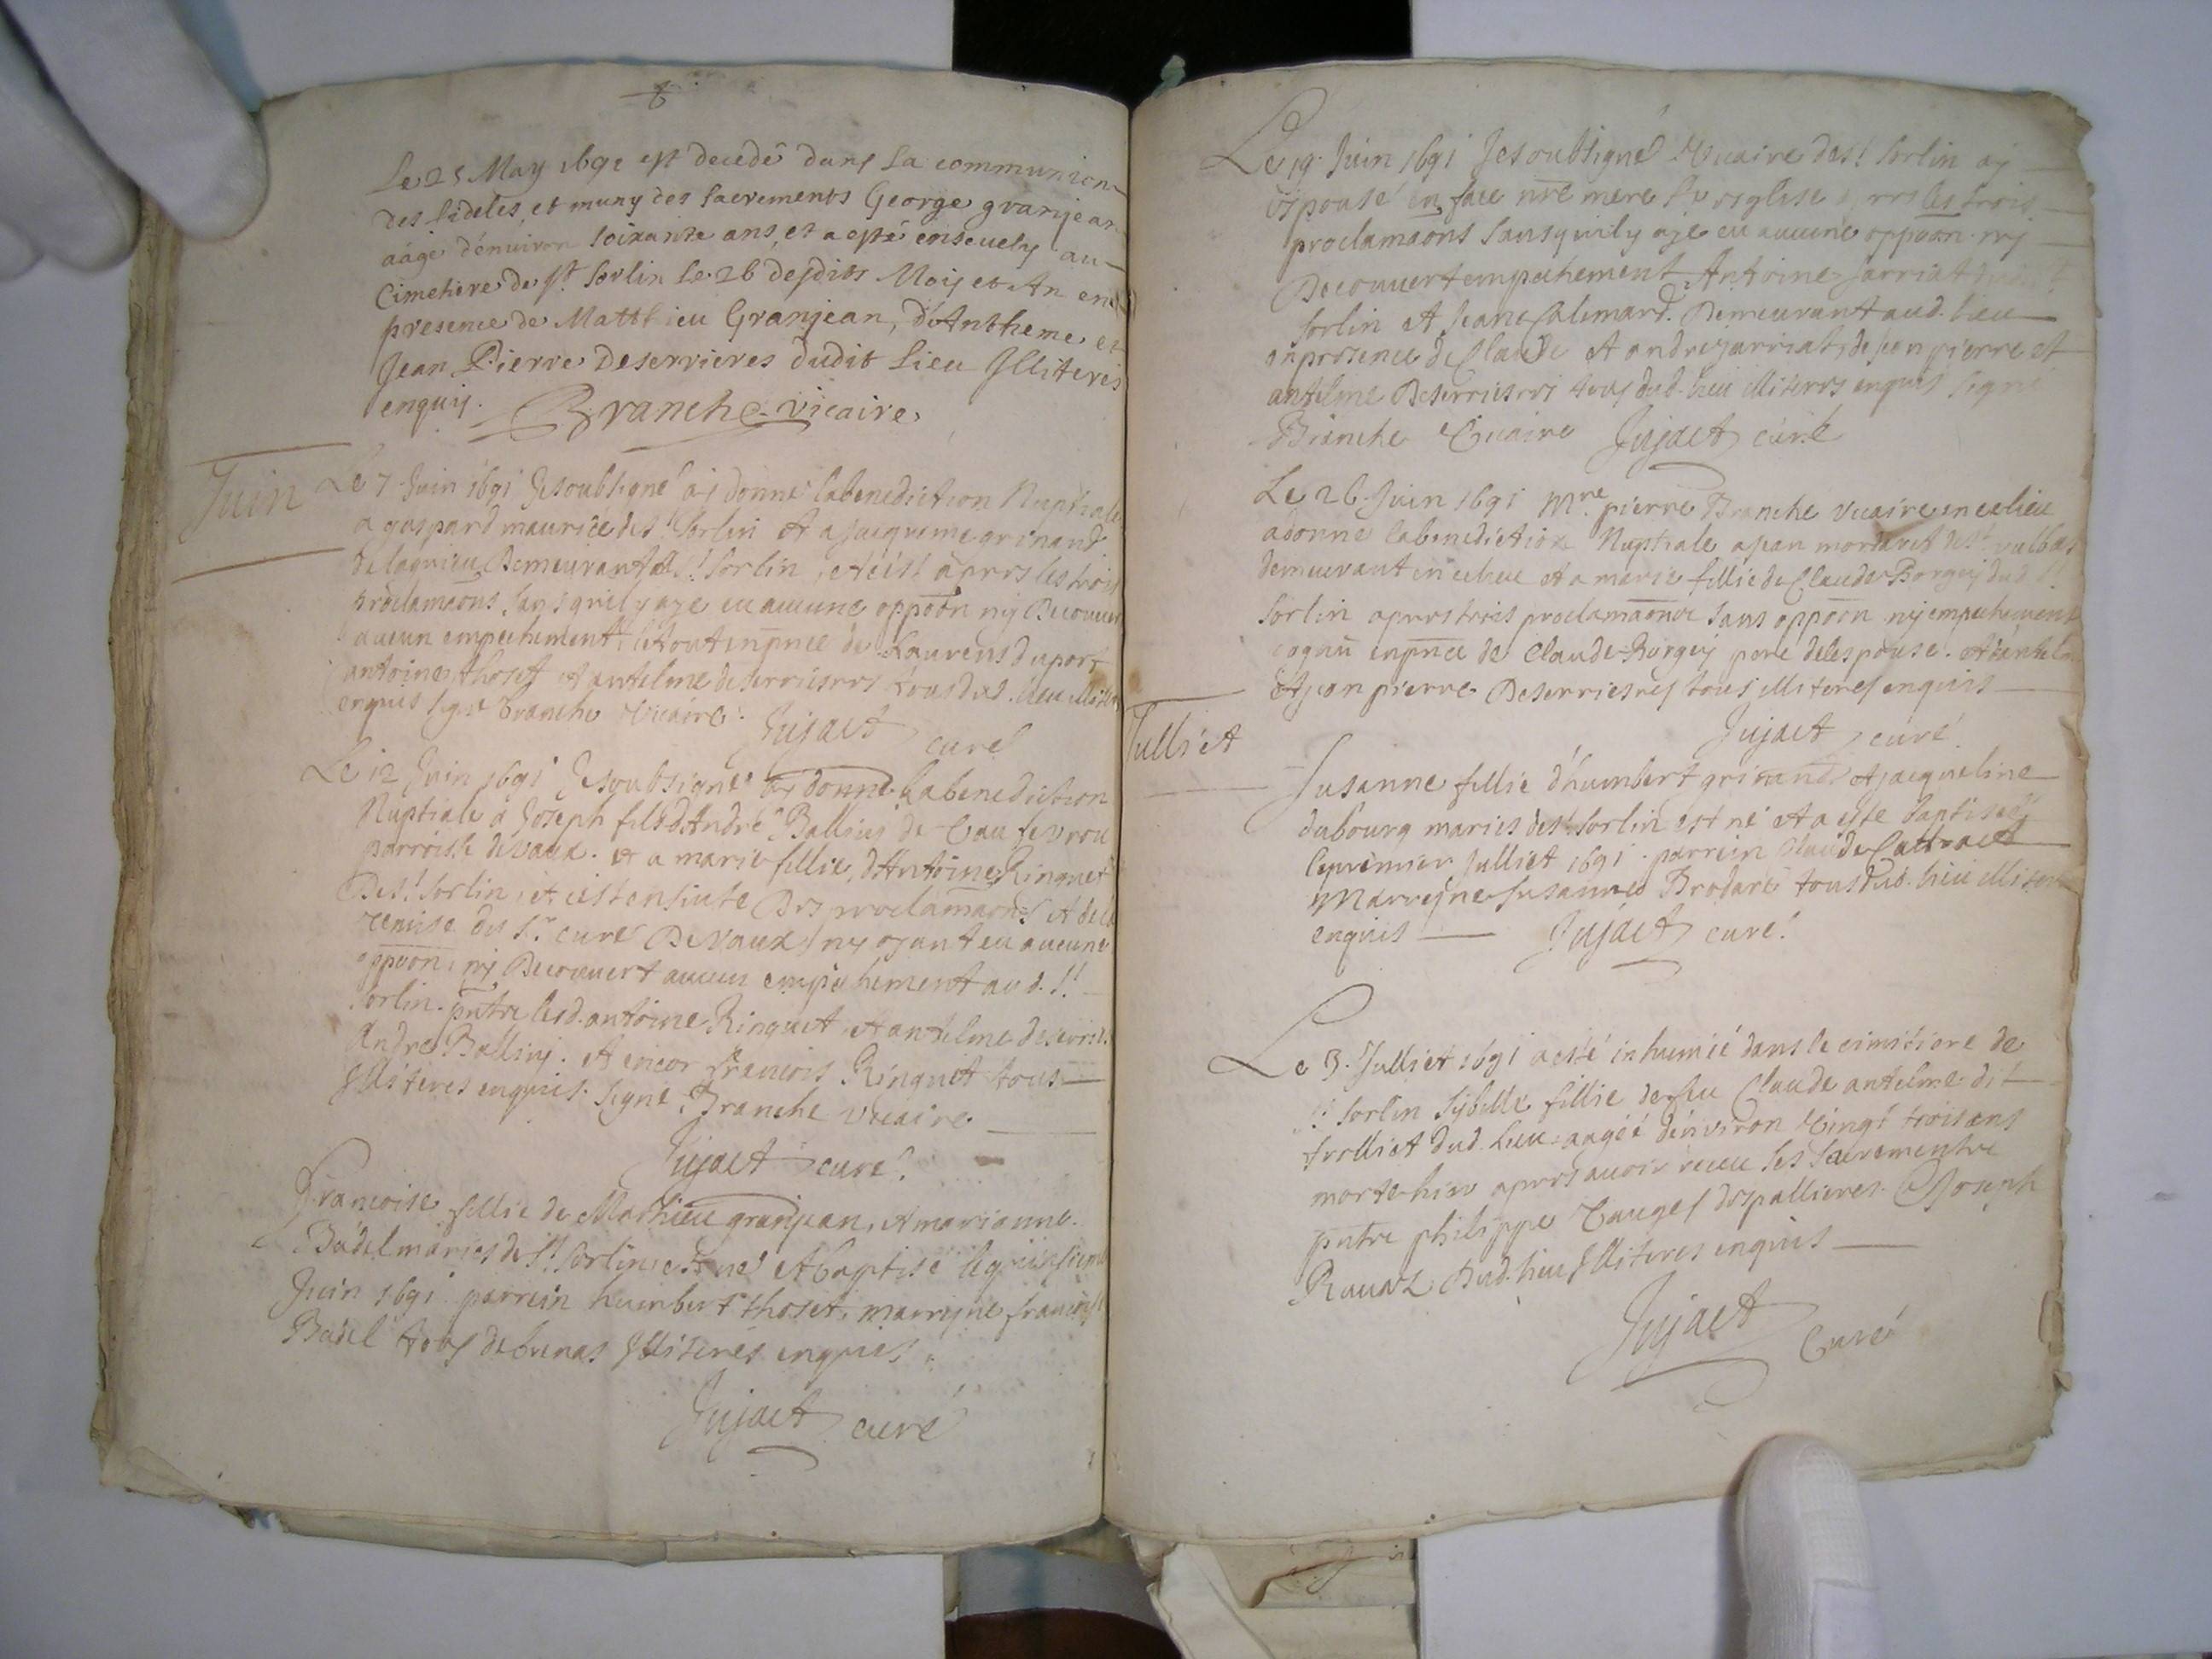 Le 25 May 1691 est decedé dans la communion
des fideles et muny des sacrements George granjean
aagé d'enuiron soixante ans, et a esté enseuely au
Cimetiere de st. Sorlin le 26 desdits Mois et An en
presence de Matthieu Granjean, d'Antheme et
Jean Pierre Deserrieres dudit lieu Illiterés
enquis. Branche vicaire.
Juin
Le 7 Juin 1691 Jesoubsigné aj donné la benediction Nuptiale
a gaspard maurice de st Sorlin et a Jacqueme grinand
de lagnieu Demeurant a st Sorlin, et c'est apres les trois
proclamaons sans quil y aye eu aucune oppoon nij Decouuert
aucun empechement. le tout en pnce de Laurens duport
antoine thoset et antelme deserrieres tous dud. lieu
enquis signé branche Vicaire. Jujact curé
Le 12 Juin 1691 Jesoubsigné aj donné la benediction
Nuptiale a Joseph fils d'André Ballius de
parroisse de vaux. et a marie fillie d'Antoine Ringuet
De st Sorlin, et c'est ensuite des proclamaons et de la
remise du sr curé De vaux ny ayant eu aucune
oppoon, nij Decouuert aucun empechement aud. st
Sorlin. pntre lesd. antoine Ringuet et antelme
André Ballivj. et encor francois Ringuet tous
Illiteres enquis. signé Branche vicaire.
Jujact curé.
Francoise fillie de Mathieu granjean, et marianne
Badel mariés de st Sorlin est né et baptisé le
Juin 1691 parrein humbert thoset, marreyne francoise
Badel tous de Illiterés enquis.
Jujact curé
Le 19 Juin 1691 Jesoubsigné Vicaire de st Sorlin aj
espousé en face nre mere ste esglise apres les trois
proclamaons sans quil y aye eu aucune oppoon nij
Decouuert empechement Antoine Jarriat
Sorlin et Jeane Calemard. Demeurant aud. lieu
en presence de Claude et andre Jarriat, de Jean pierre et
antelme Deserrieres tous dud. lieu illiteres enquis signé
Branche Vicaire Jujact curé
Le 26 Juin 1691 Mre pierre Branche vicaire en ce lieu
a donné la benediction Nuptiale a Jean de st vulbas
demeurant en ce lieu et a marie fillie de Claude Borgeij dud st
Sorlin apres trois proclamaons sans oppoon nij empechement
cognu en pnce de Claude Borgeij pere de lespouse.
et Jean pierre Deserrieres tous illiteres enquis
Jujact curé
Julliet
Susanne fillie d'humbert grinand et Jacqueline
dubourg mariés de st Sorlin est né et a esté baptisée
le premier Julliet 1691. parrein Claude
Marreyne Susanne Brodard tous dud. lieu
enquis Jujact curé.
Le 3 Julliet 1691 a esté inhumée dans le cimitiere de
st Sorlin Sybille fillie de feu Claude antelme dit
trolliet dud. lieu aagée d'environ vingt trois ans
morte hier apres auoir receu les sacrements
pntre philippe Vauges despallieres Joseph
Rauaz Dud. lieu Illiteres enquis
Jujact Curé